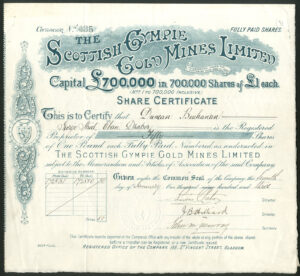 FULLY PAID SHARES
THE
SCOTTISH GYMPIE
GOLD MINES LIMITED
Capital £700,000 in 700,000 Shares of £1 each.
(Nos 1 to 700,000 INCLUSIVE)
SHARE CERTIFICATE
This is to Certify that Duncan Buchanan
is the Registered
Proprietor of Fifty Shares
of One Pound each Fully Paid, Numbered as undernoted in
THE SCOTTISH GYMPIE GOLD MINES LIMITED
subject to the Memorandum and Articles of Association of the said Company
GIVEN under the COMMON SEAL of the Company the
day of
This Certificate must be delivered to the Company with any transfer of the whole or any portion of the shares stated
before a transfer can be Registered or a new certificate issued.
REGISTERED OFFICE OF THE COMPANY ST VINCENT STREET, GLASGOW